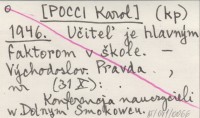 [POCCI Karol] (kp)
1946. Učiteľ je hlavným
faktorom v škole. –
Východoslov. Pravda.,
– (31 X): .
Konferencja nauczycieli
w Dolnym Smokowcu.